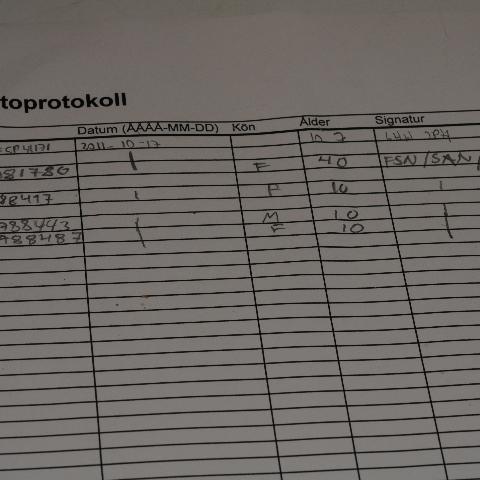 toprotokoll
Datum (ÅÅÅÅ-MM-DD) Kön Ålder Signatur
2011-10-17 10
81780 F 40 FSN/SAN
88417 F 10
988443 M 10
988487 F 10